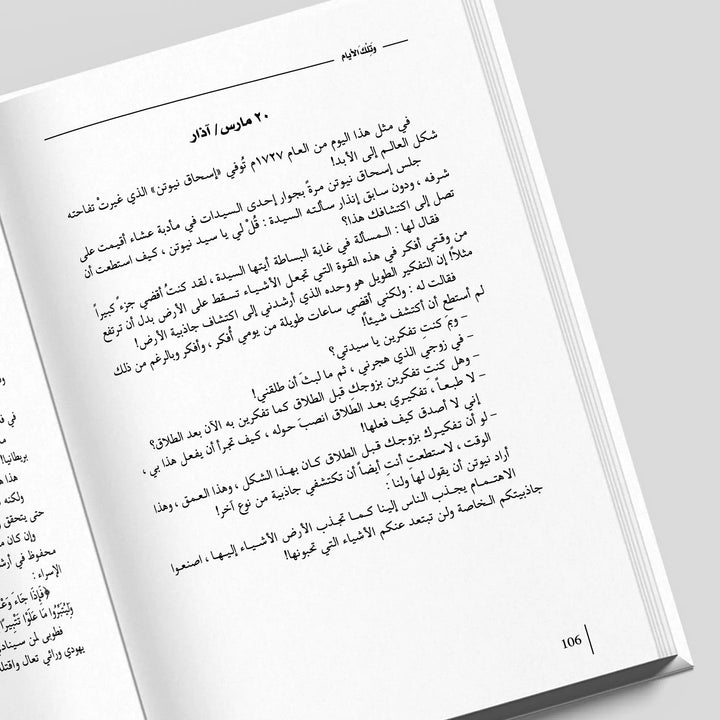 وَتِلْكَ الأيام
٢٠ مارس/ آذار
في مثل هذا اليوم من العام ١٧٢٧م تُوفي «إسحاق نيوتن» الذي غيرتْ تفاحته
شكل العالم إلى الأبد!
جلس إسحاق نيوتن مرةً بجوار إحدى السيدات في مأدبة عشاء أقيمت على
شرفه ، ودون سابق إنذار سألته السيدة : قُلْ لي يا سيد نيوتن ، كيف استطعت أن
تصل إلى اكتشافك هذا؟
فقال لها : المسألة في غاية البساطة أيتها السيدة ، لقد كنتُ أقضي جزءً كبيراً
من وقتي أفكر في هذه القوة التي تجعل الأشياء تسقط على الأرض بدل أن ترتفع
مثلاً! إن التفكير الطويل هو وحده الذي أرشدني إلى اكتشاف جاذبية الأرض!
فقالت له : ولكني أقضي ساعات طويلة من يومي أُفكر ، وأفكر وبالرغم من ذلك
لم أستطع أن أكتشف شيئاً!
– وبمَ كنتِ تفكرين يا سيدتي؟
– في زوجيَ الذي هجرني ، ثم ما لبثَ أن طلقني!
– وهل كنتِ تفكرين بزوجكِ قبل الطلاق كما تفكرين به الآن بعد الطلاق؟
– لا طبعاً ، تفكيري بعد الطلاق انصبَ حوله ، كيف تجرأ أن يفعل هذا بي ،
إني لا أصدق كيف فعلها!
– لو أن تفكيركِ بزوجكِ قبل الطلاق كان بهذا الشكل ، وهذا العمق ، وهذا
الوقت ، لاستطعتِ أنتِ أيضاً أن تكتشفي جاذبية من نوع آخر!
أراد نيوتن أن يقول لها ولنا :
الاهتمام يجذب الناس إلينا كما تجذب الأرض الأشياء إليها ، اصنعوا
جاذبيتكم الخاصة ولن تبتعد عنكم الأشياء التي تحبونها!
106
في
بريطانيا!
هذا
ولكنه
حتى يتحقق
وإن كان
محفوظ في أرش
الإسراء :
﴿فَإِذَا جَاءَ وَعْ
وَلِيُتَبِّرُوا مَا عَلَوْا تَتْبِيرًا
فطوبى لمن سينادي
يهودي ورائي تعال واقتله